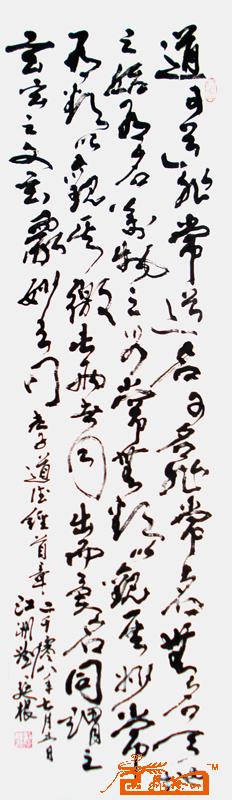 道可道非常道名可名非常名無名天地
之始有名萬物之母常無欲以觀其妙常
有欲以觀其徼此兩者同出而異名同謂之
玄玄之又玄眾妙之門
老子道德經首章二千零八年七月五日
江洲
TM